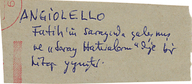 ANGIOLELLO
Fatih'in sarayında çalışmış
ve "Saray Hatıraları" diye bir
kitap yazmıştı